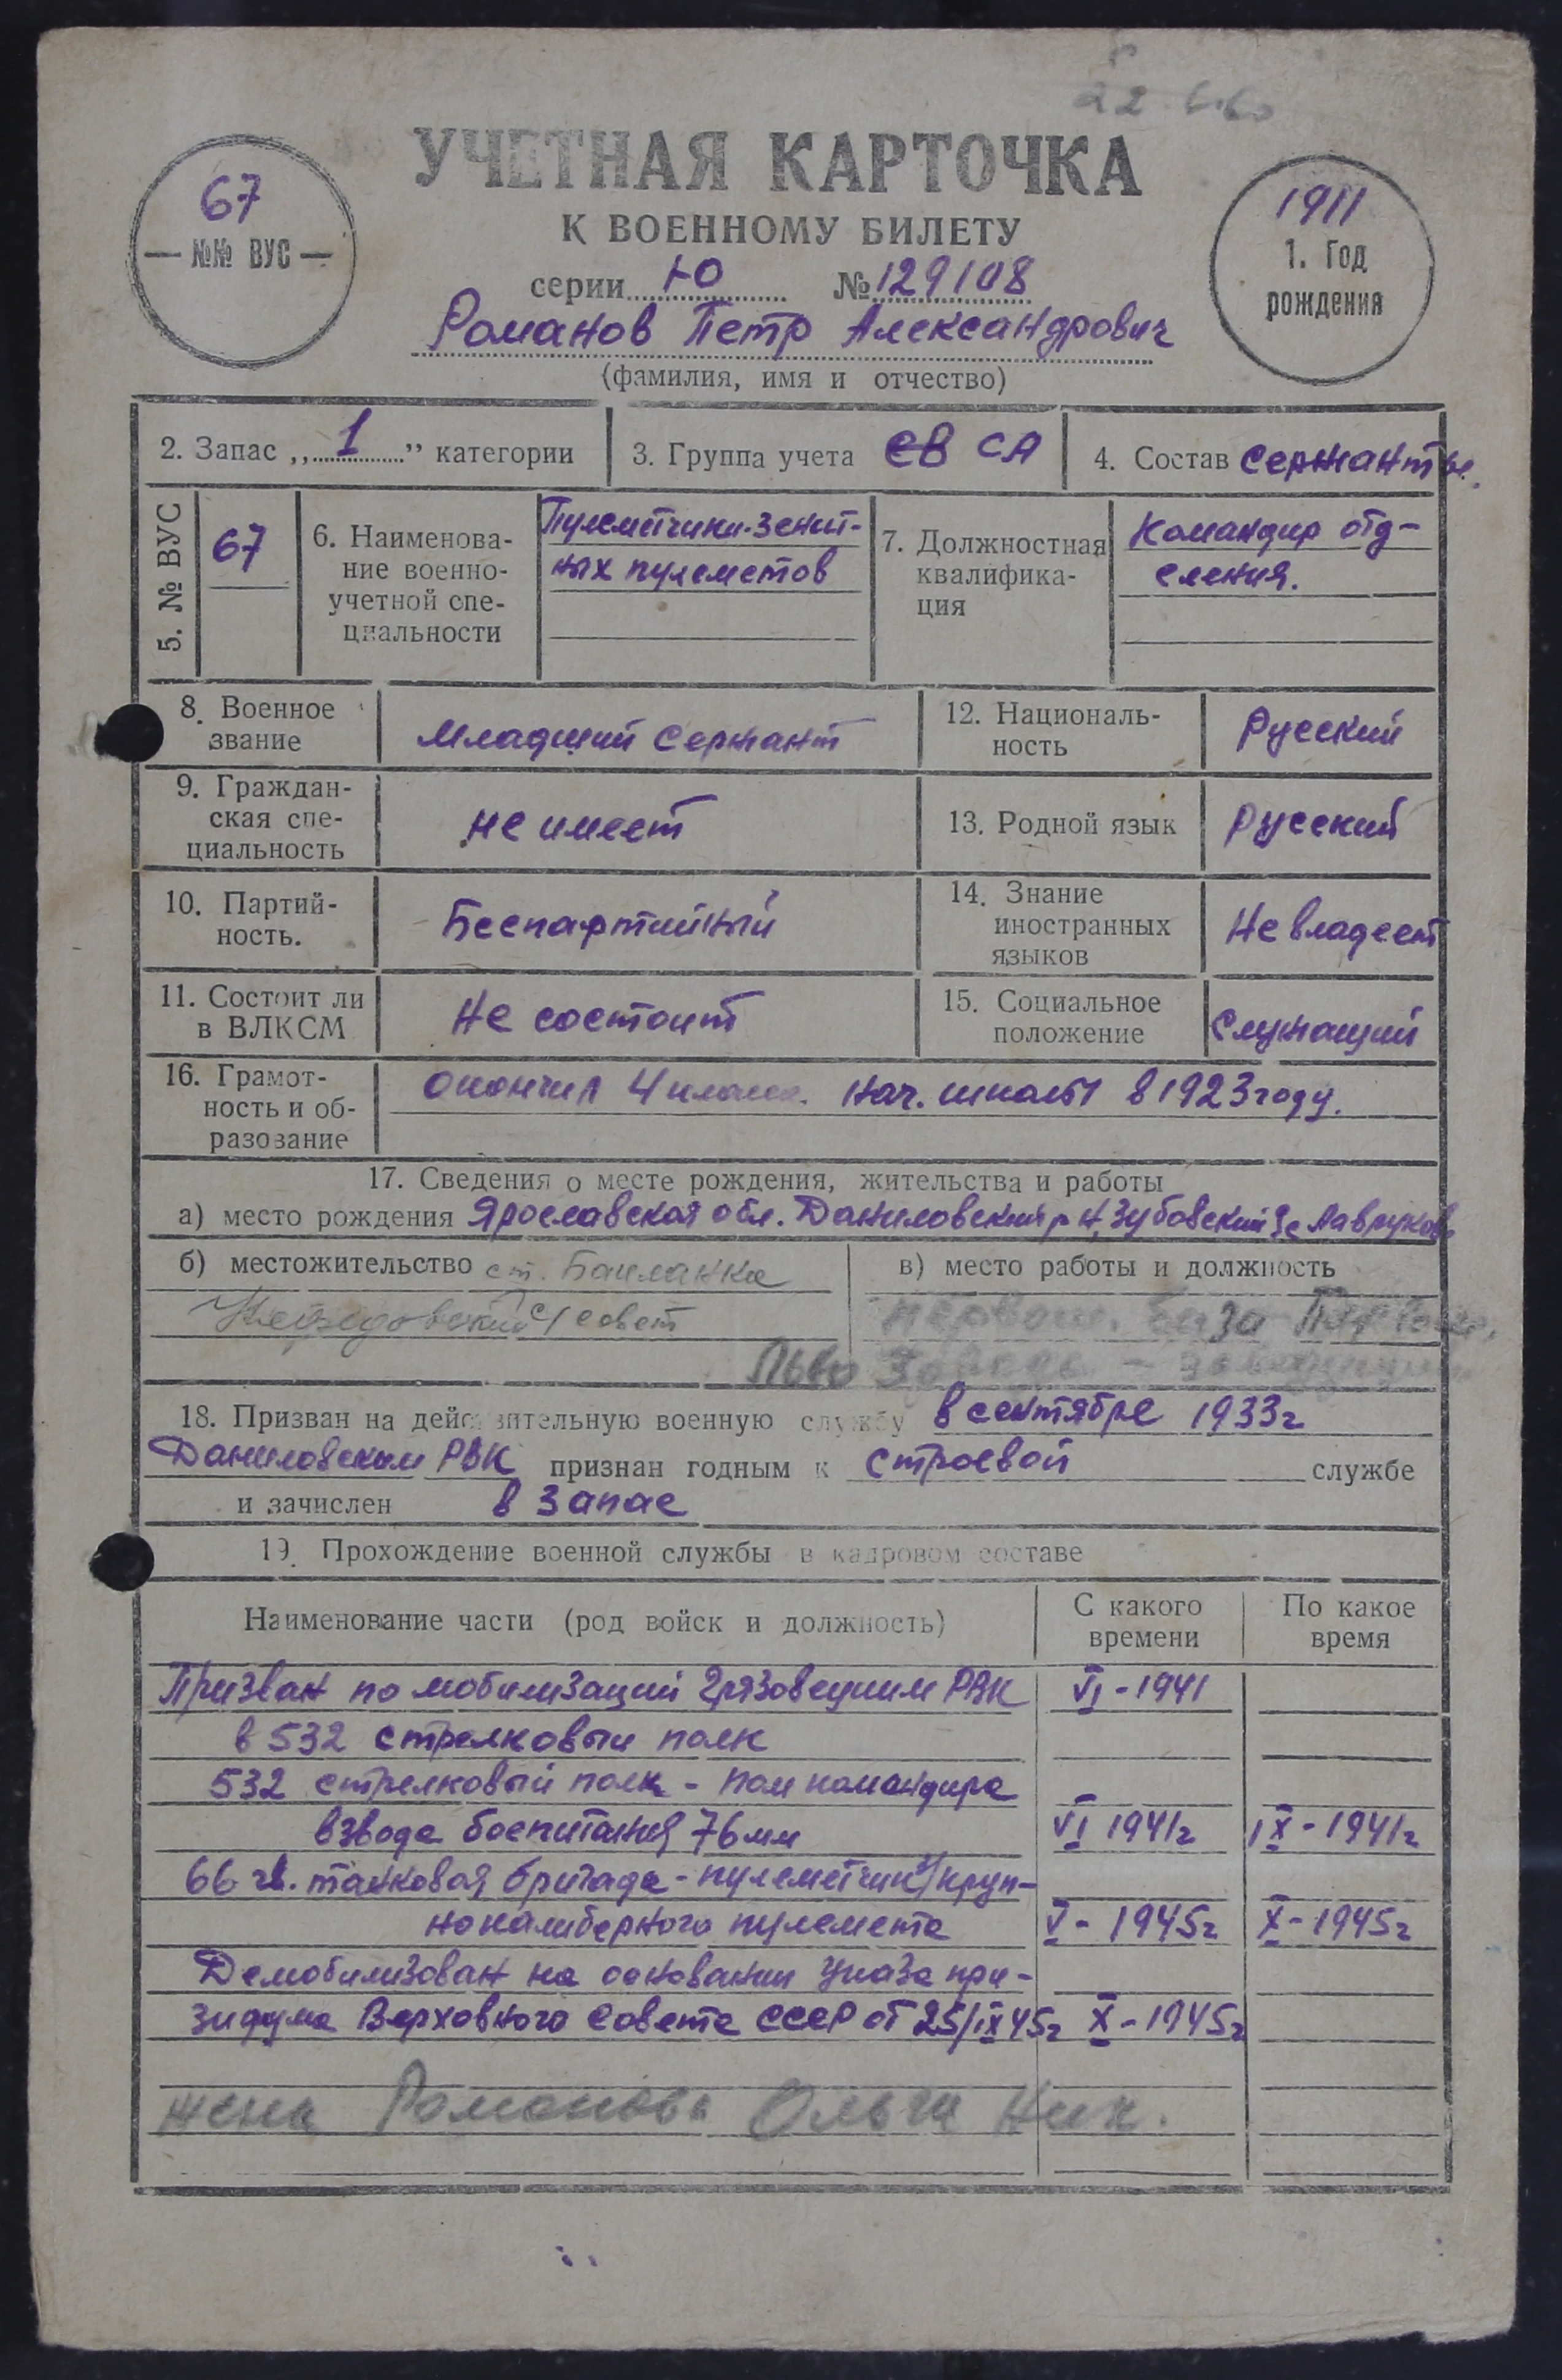 22 6.60
УЧЕТНАЯ КАРТОЧКА
К ВОЕННОМУ БИЛЕТУ
67
— №№ ВУС —
1911
1. Год
рождения
серии Ю № 129108
Романов Петр Александрович
(фамилия, имя и отчество)
2. Запас „1” категории
3. Группа учета СВ СА
4. Состав Сержанты.
5. № ВУС
67
6. Наименова-
ние военно-
учетной спе-
циальности
Пулеметчики-зенит-
ных пулеметов
7. Должностная
квалифика-
ция
Командир отд-
еления.
8. Военное
звание
Младший сержант
12. Националь-
ность
Русский
9. Граждан-
ская спе-
циальность
не имеет
13. Родной язык
Русский
10. Партий-
ность.
Беспартийный
14. Знание
иностранных
языков
Не владеет
11. Состоит ли
в ВЛКСМ
Не состоит
15. Социальное
положение
Служащий
16. Грамот-
ность и об-
разование
окончил 4 класс. нач. школы в 1923 году.
17. Сведения о месте рождения, жительства и работы
а) место рождения Ярославская обл. Даниловский р-н, Зубовский
б) местожительство ст. Бакланка
с/совет
в) место работы и должность
база
18. Призван на действительную военную службу в сентябре 1933г
Даниловским РВК признан годным к строевой службе
и зачислен в запас
19. Прохождение военной службы в кадровом составе
Наименование части (род войск и должность)
С какого
времени
По какое
время
Призван по мобилизаций Грязовецким РВК VI-1941
в 532 стрелковый полк
532 стрелковый полк - пом командира
взвода боепитания 76мм VI 1941г IX-1941г
66 гв. танковая бригада - пулеметчик круп-
нокалиберного пулемета V-1945г X-1945г
Демобилизован на основании указа при-
зидума Верховного Совета СССР от 25/IX 45г X-1945г
жена Романова Ольга Ник.